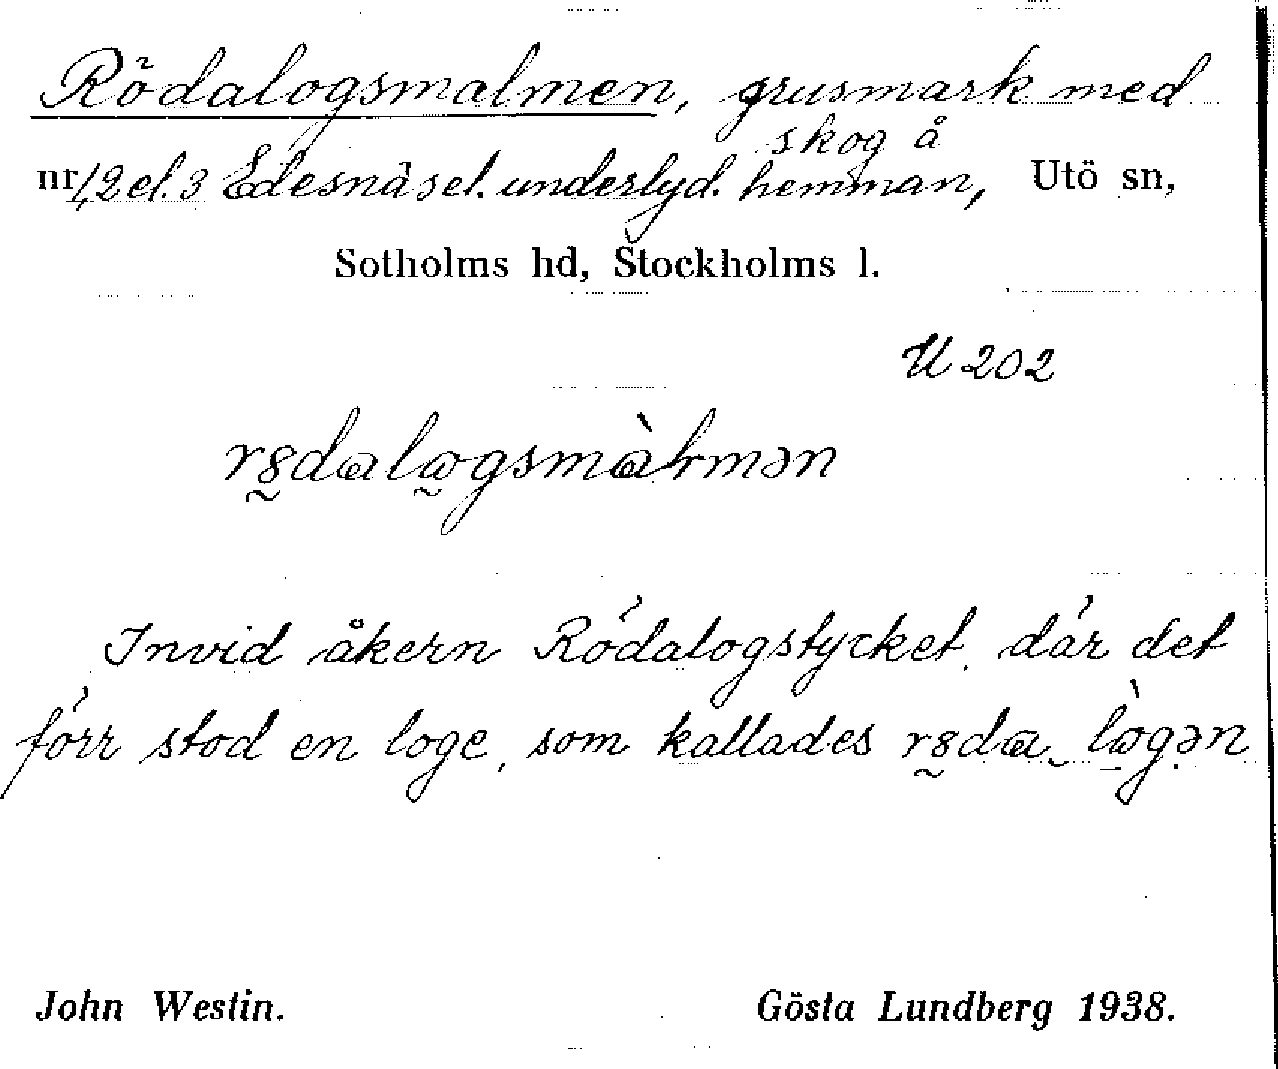 Rödalogsmalmen, grusmark med
skog å
nr 1, 2 el. 3 Edesnäs el. underlyd. hemman, Utö sn,
Sotholms hd, Stockholms l.
U 202
Invid åkern Rödalogstycket, där det
förr stod en loge, som kallades
John Westin. Gösta Lundberg 1938.